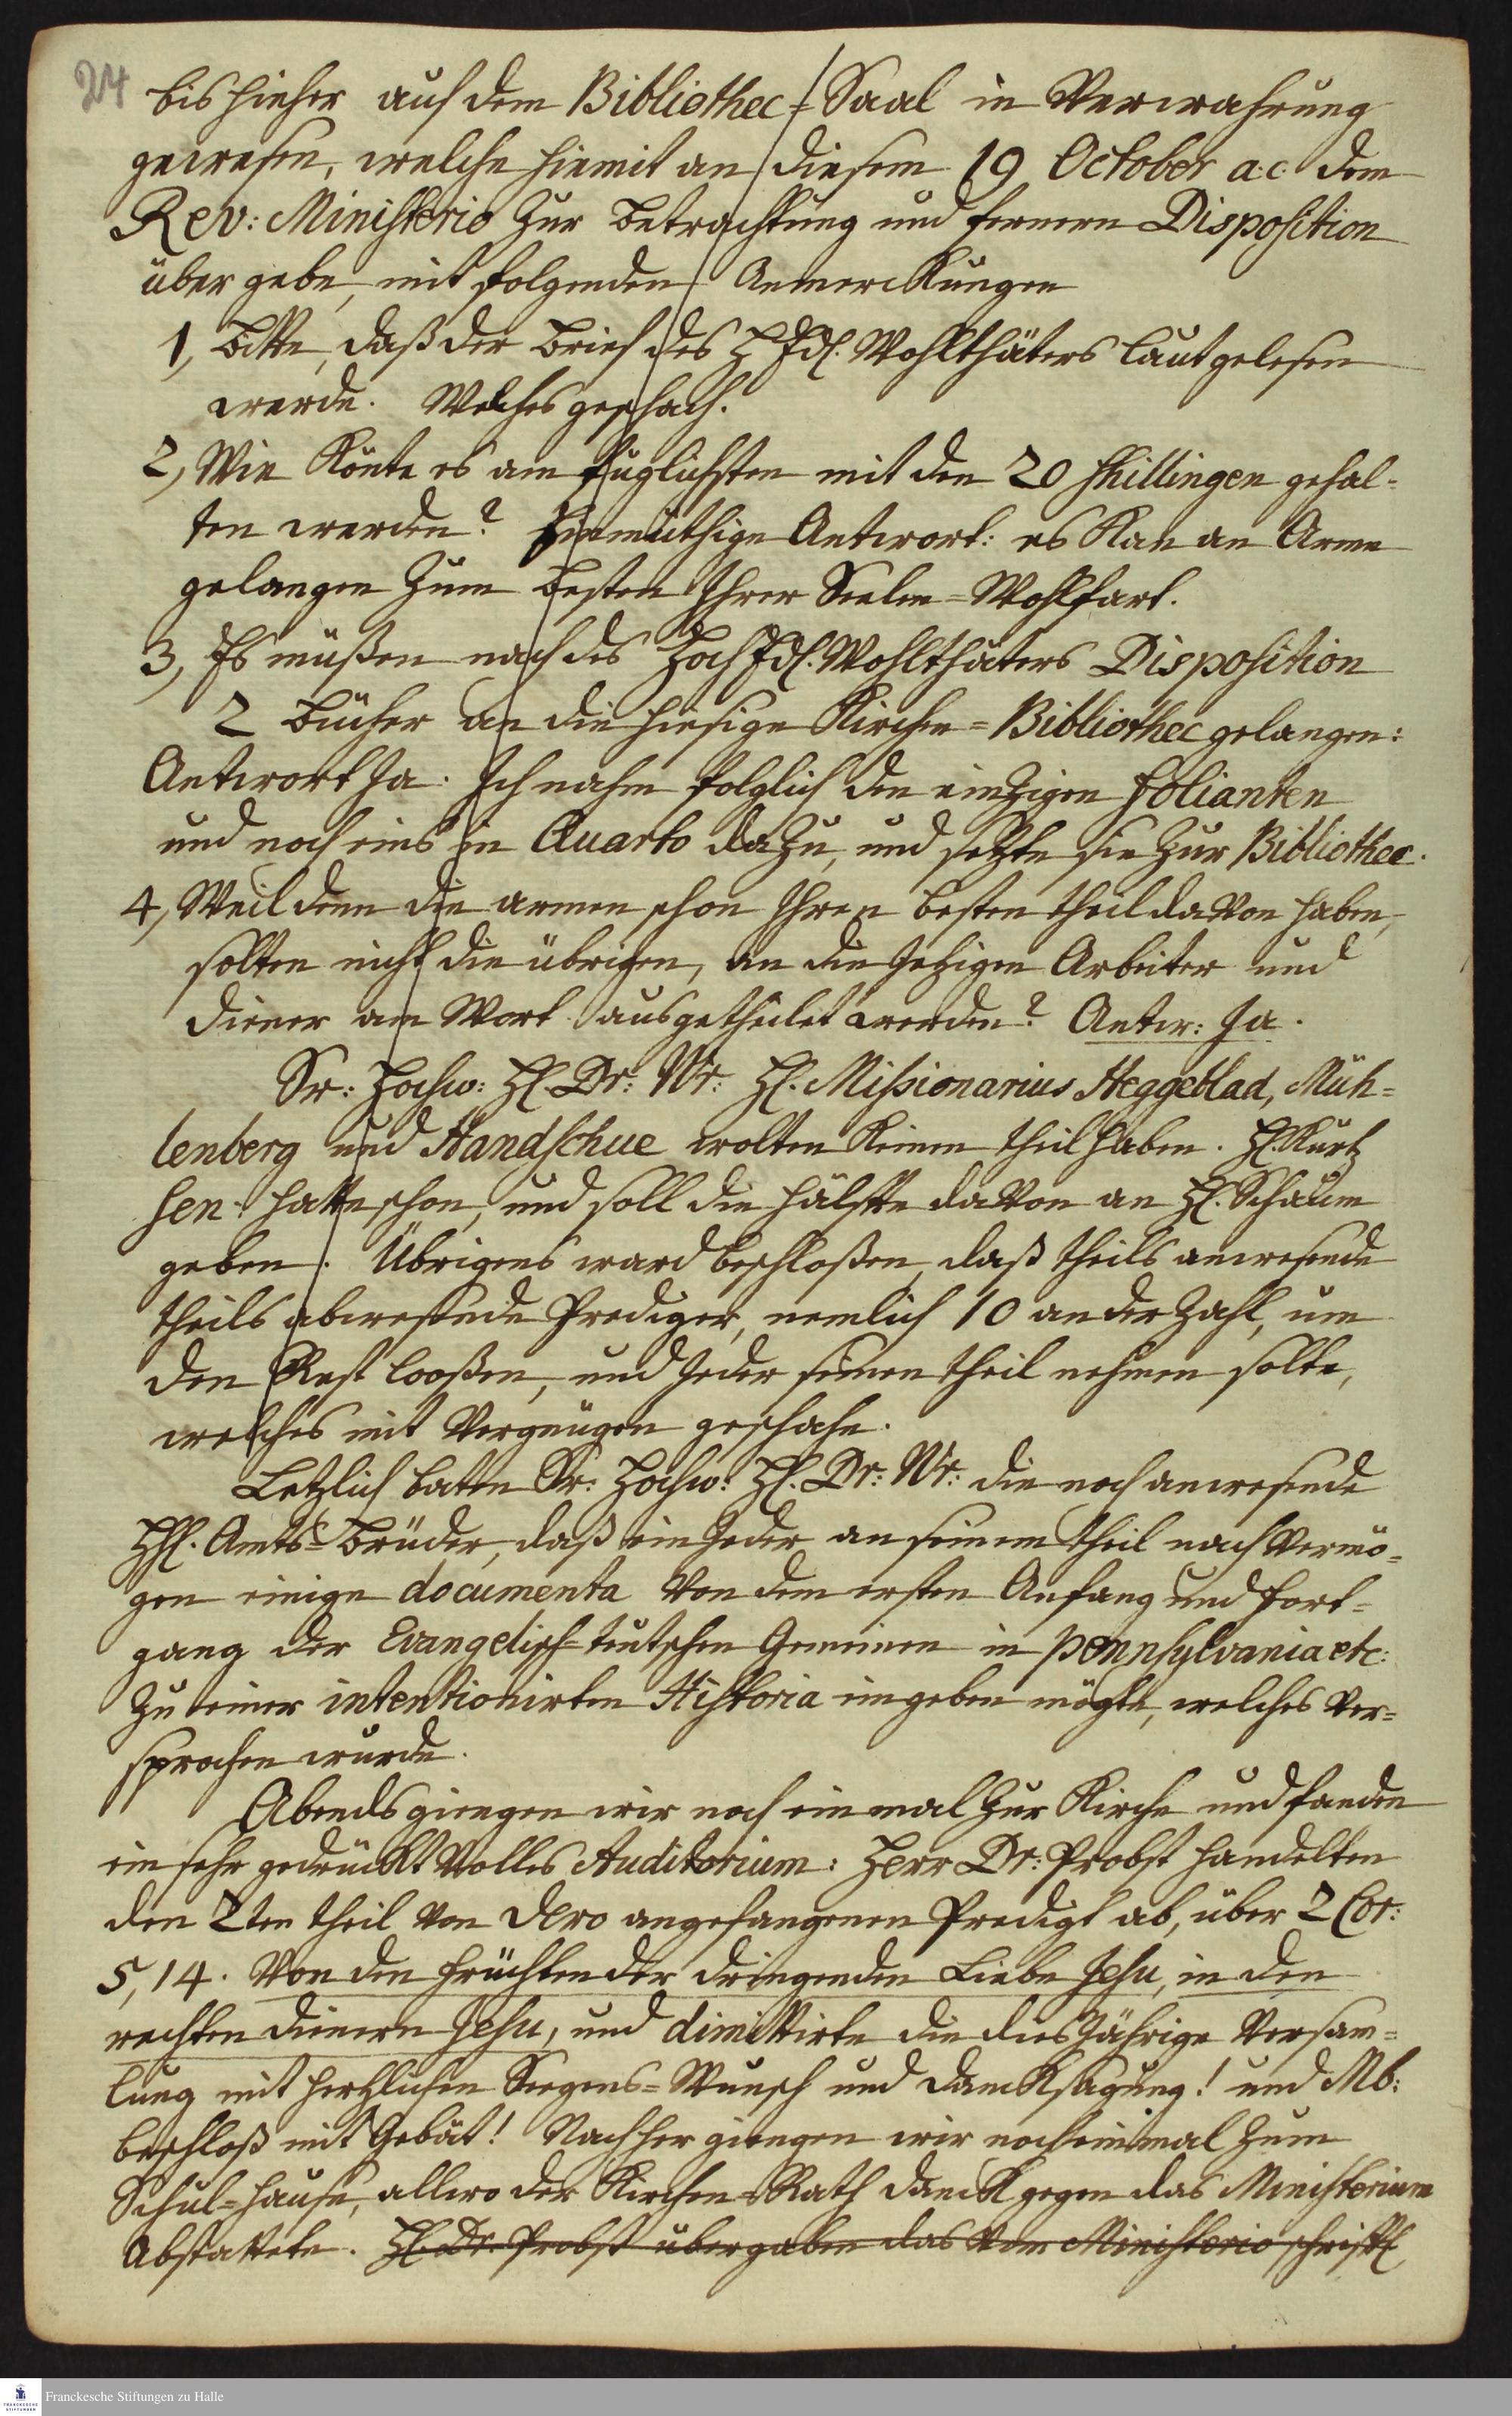 24
bishieher auf dem Bibliothec-Saal in Verwahrung
gewesen, welche hiemit an diesem 19 October a: c: dem
Rev: Ministerio zur Betrachtung und fernern Disposition
über gebe, mit folgenden Anmerckungen
1, Bitte, daß der Brief des H Edl. Wohlthäters laut gelesen
werde. Welches geschach.
2, Wie Könte es am füglichsten mit den 20 shillingen gehal=
ten werden? Einmüthige Antwort: es Kan an Arme
gelangen zum besten Ihrer Seelen-Wohlfart.
3, Es müßen nach des HochEdl. Wohlthäters Disposition
2 Bücher an die hiesige Kirchen=Bibliothec gelangen:
Antwort Ja. Ich nahm folglich den einzigen folianten
und noch eins in Quarto dazu, und setzte sie zur Bibliothec.
4, Weil denn die armen schon Ihren besten theil davon haben,
solten nicht die übrigen, an die Jetzigen Arbeiter und
Diener am Wort ausgetheilet werden? Antw: Ja.
Sr: Hochw: H. Dr: Wr: H. Missionarius Heggeblad, Müh=
lenberg und Handschue wolten Keinen theil haben. H. Kurtz
sen: hatte schon, und soll die hälfte davon an H. Schaum
geben. Übrigens ward beschloßen, daß theils anwesende
theils abwesende Prediger, nemlich 10 an der Zahl, um
den Rest looßen, und Jeder seinen theil nehmen solte,
welches mit Vergnügen geschahe.
Letzlich baten Sr: Hochw: H. Dr: Wr: die noch anwesende
HH. Amts=Brüder, daß ein Jeder an seinem theil nach Vermö=
gen einige documenta von dem ersten Anfang und fort=
gang der Evangelisch=teutschen Gemeinen in Pennsylvania etc:
zu einer intentionirten Historia eingeben mögte, welches ver=
sprochen wurde.
Abends giengen wir noch einmal zur Kirche und fanden
ein sehr gedrückt volles Auditorium: Herr Dr: Probst handelten
den 2ten theil von Dero angefangenen Predigt ab, über 2 Cor:
5, 14. Von den Früchten der dringenden Liebe Jesu, in den
rechten dienern Jesu, und dimittirte die diesJährige Versam=
lung mit hertzlichen Seegens=Wunsch und Dancksagung! und Mb:
beschloß mit Gebät! Nachher giengen wir nocheinmal zum
Schul=Hause, allwo der Kirchen=Rath Danck gegen das Ministerium
Abstattete. H. Dr. Probst übergaben das vom Ministerio schriftl
Franckesche Stiftungen zu Halle